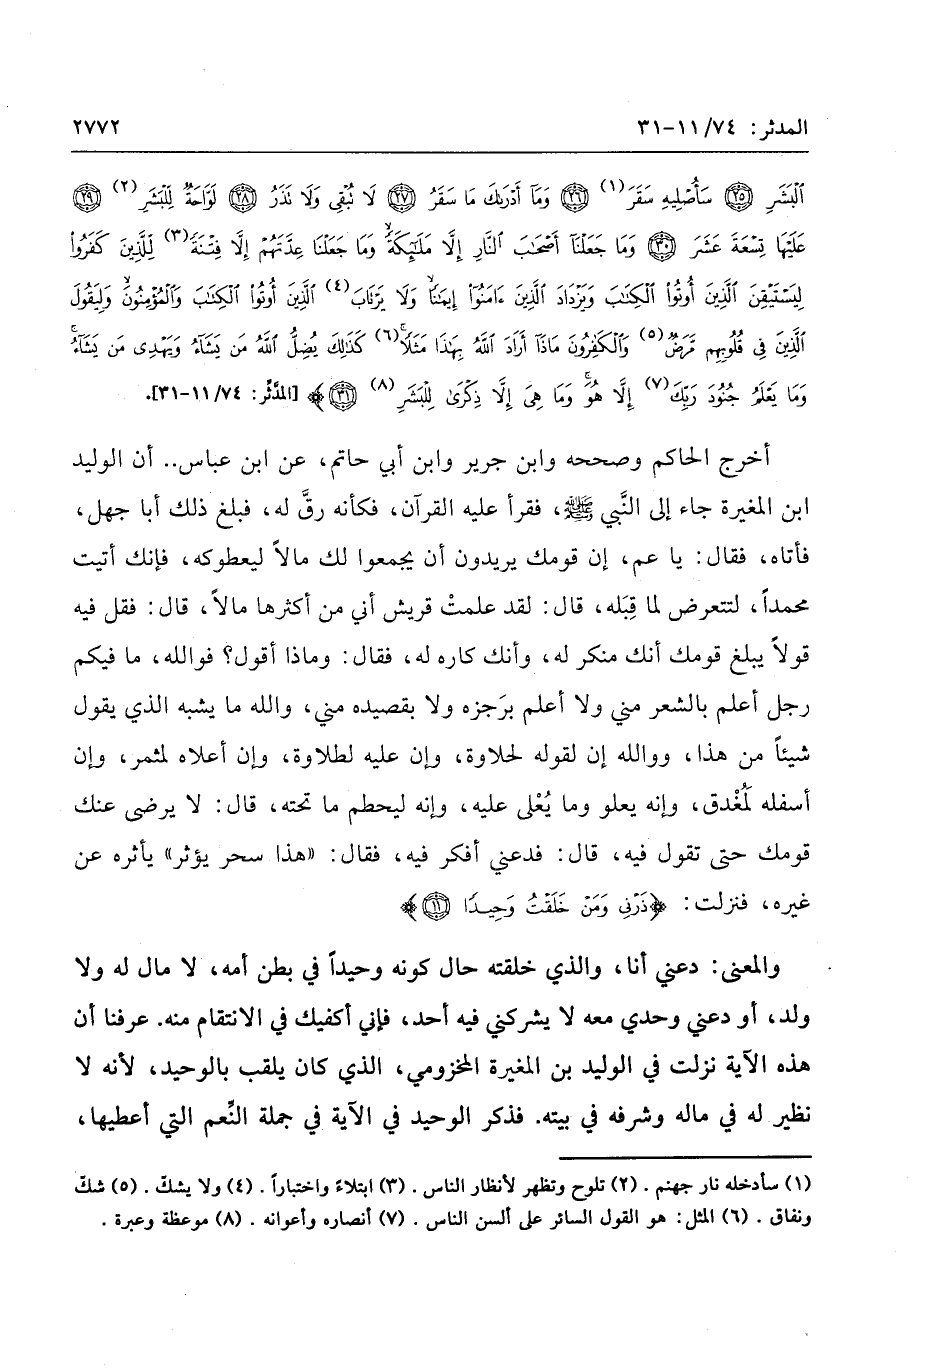 المدثر: ٧٤/ ١١-٣١ ٢٧٧٢
ٱلْبَشَرِ ﴿٢٥﴾ سَأُصْلِيهِ سَقَرَ(١) ﴿٢٦﴾ وَمَآ أَدْرَىٰكَ مَا سَقَرُ ﴿٢٧﴾ لَا تُبْقِى وَلَا تَذَرُ ﴿٢٨﴾ لَوَّاحَةٌ لِّلْبَشَرِ(٢) ﴿٢٩﴾
عَلَيْهَا تِسْعَةَ عَشَرَ ﴿٣٠﴾ وَمَا جَعَلْنَآ أَصْحَٰبَ ٱلنَّارِ إِلَّا مَلَٰٓئِكَةً ۙ وَمَا جَعَلْنَا عِدَّتَهُمْ إِلَّا فِتْنَةً(٣) لِّلَّذِينَ كَفَرُوا۟
لِيَسْتَيْقِنَ ٱلَّذِينَ أُوتُوا۟ ٱلْكِتَٰبَ وَيَزْدَادَ ٱلَّذِينَ ءَامَنُوٓا۟ إِيمَٰنًا ۙ وَلَا يَرْتَابَ(٤) ٱلَّذِينَ أُوتُوا۟ ٱلْكِتَٰبَ وَٱلْمُؤْمِنُونَ ۙ وَلِيَقُولَ
ٱلَّذِينَ فِى قُلُوبِهِم مَّرَضٌ(٥) وَٱلْكَٰفِرُونَ مَاذَآ أَرَادَ ٱللَّهُ بِهَٰذَا مَثَلًا ۚ(٦) كَذَٰلِكَ يُضِلُّ ٱللَّهُ مَن يَشَآءُ وَيَهْدِى مَن يَشَآءُ ۚ
وَمَا يَعْلَمُ جُنُودَ رَبِّكَ(٧) إِلَّا هُوَ ۚ وَمَا هِىَ إِلَّا ذِكْرَىٰ لِلْبَشَرِ(٨) ﴿٣١﴾﴾ [المدَّثِّر: ٧٤/ ١١-٣١].
أخرج الحاكم وصححه وابن جرير وابن أبي حاتم، عن ابن عباس.. أن الوليد
ابن المغيرة جاء إلى النَّبي ﷺ، فقرأ عليه القرآن، فكأنه رقَّ له، فبلغ ذلك أبا جهل،
فأتاه، فقال: يا عم، إن قومك يريدون أن يجمعوا لك مالاً ليعطوكه، فإنك أتيت
محمداً، لتتعرض لما قِبَله، قال: لقد علمتْ قريش أني من أكثرها مالاً، قال: فقل فيه
قولاً يبلغ قومك أنك منكر له، وأنك كاره له، فقال: وماذا أقول؟ فوالله، ما فيكم
رجل أعلم بالشعر مني ولا أعلم برَجزه ولا بقصيده مني، والله ما يشبه الذي يقول
شيئاً من هذا، ووالله إن لقوله لحلاوة، وإن عليه لطلاوة، وإن أعلاه لمثمر، وإن
أسفله لَمُغدق، وإنه يعلو وما يُعْلى عليه، وإنه ليحطم ما تحته، قال: لا يرضى عنك
قومك حتى تقول فيه، قال: فدعني أفكر فيه، فقال: «هذا سحر يؤثر» يأثره عن
غيره، فنزلت: ﴿ذَرْنِى وَمَنْ خَلَقْتُ وَحِيدًا ﴿١١﴾﴾
والمعنى: دعني أنا، والذي خلقته حال كونه وحيداً في بطن أمه، لا مال له ولا
ولد، أو دعني وحدي معه لا يشركني فيه أحد، فإني أكفيك في الانتقام منه. عرفنا أن
هذه الآية نزلت في الوليد بن المغيرة المخزومي، الذي كان يلقب بالوحيد، لأنه لا
نظير له في ماله وشرفه في بيته. فذكر الوحيد في الآية في جملة النِّعم التي أعطيها،
(١) سأدخله نار جهنم. (٢) تلوح وتظهر لأنظار الناس. (٣) ابتلاءً واختباراً. (٤) ولا يشكّ. (٥) شكّ
ونفاق. (٦) المثل: هو القول السائر على ألسن الناس. (٧) أنصاره وأعوانه. (٨) موعظة وعبرة.